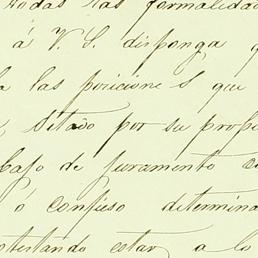 todas las formalidad
á V. S. disponga q
a las posicione s que
sitado por su propi
bajo de juramento co
ó confieso determina
otestando estar a lo